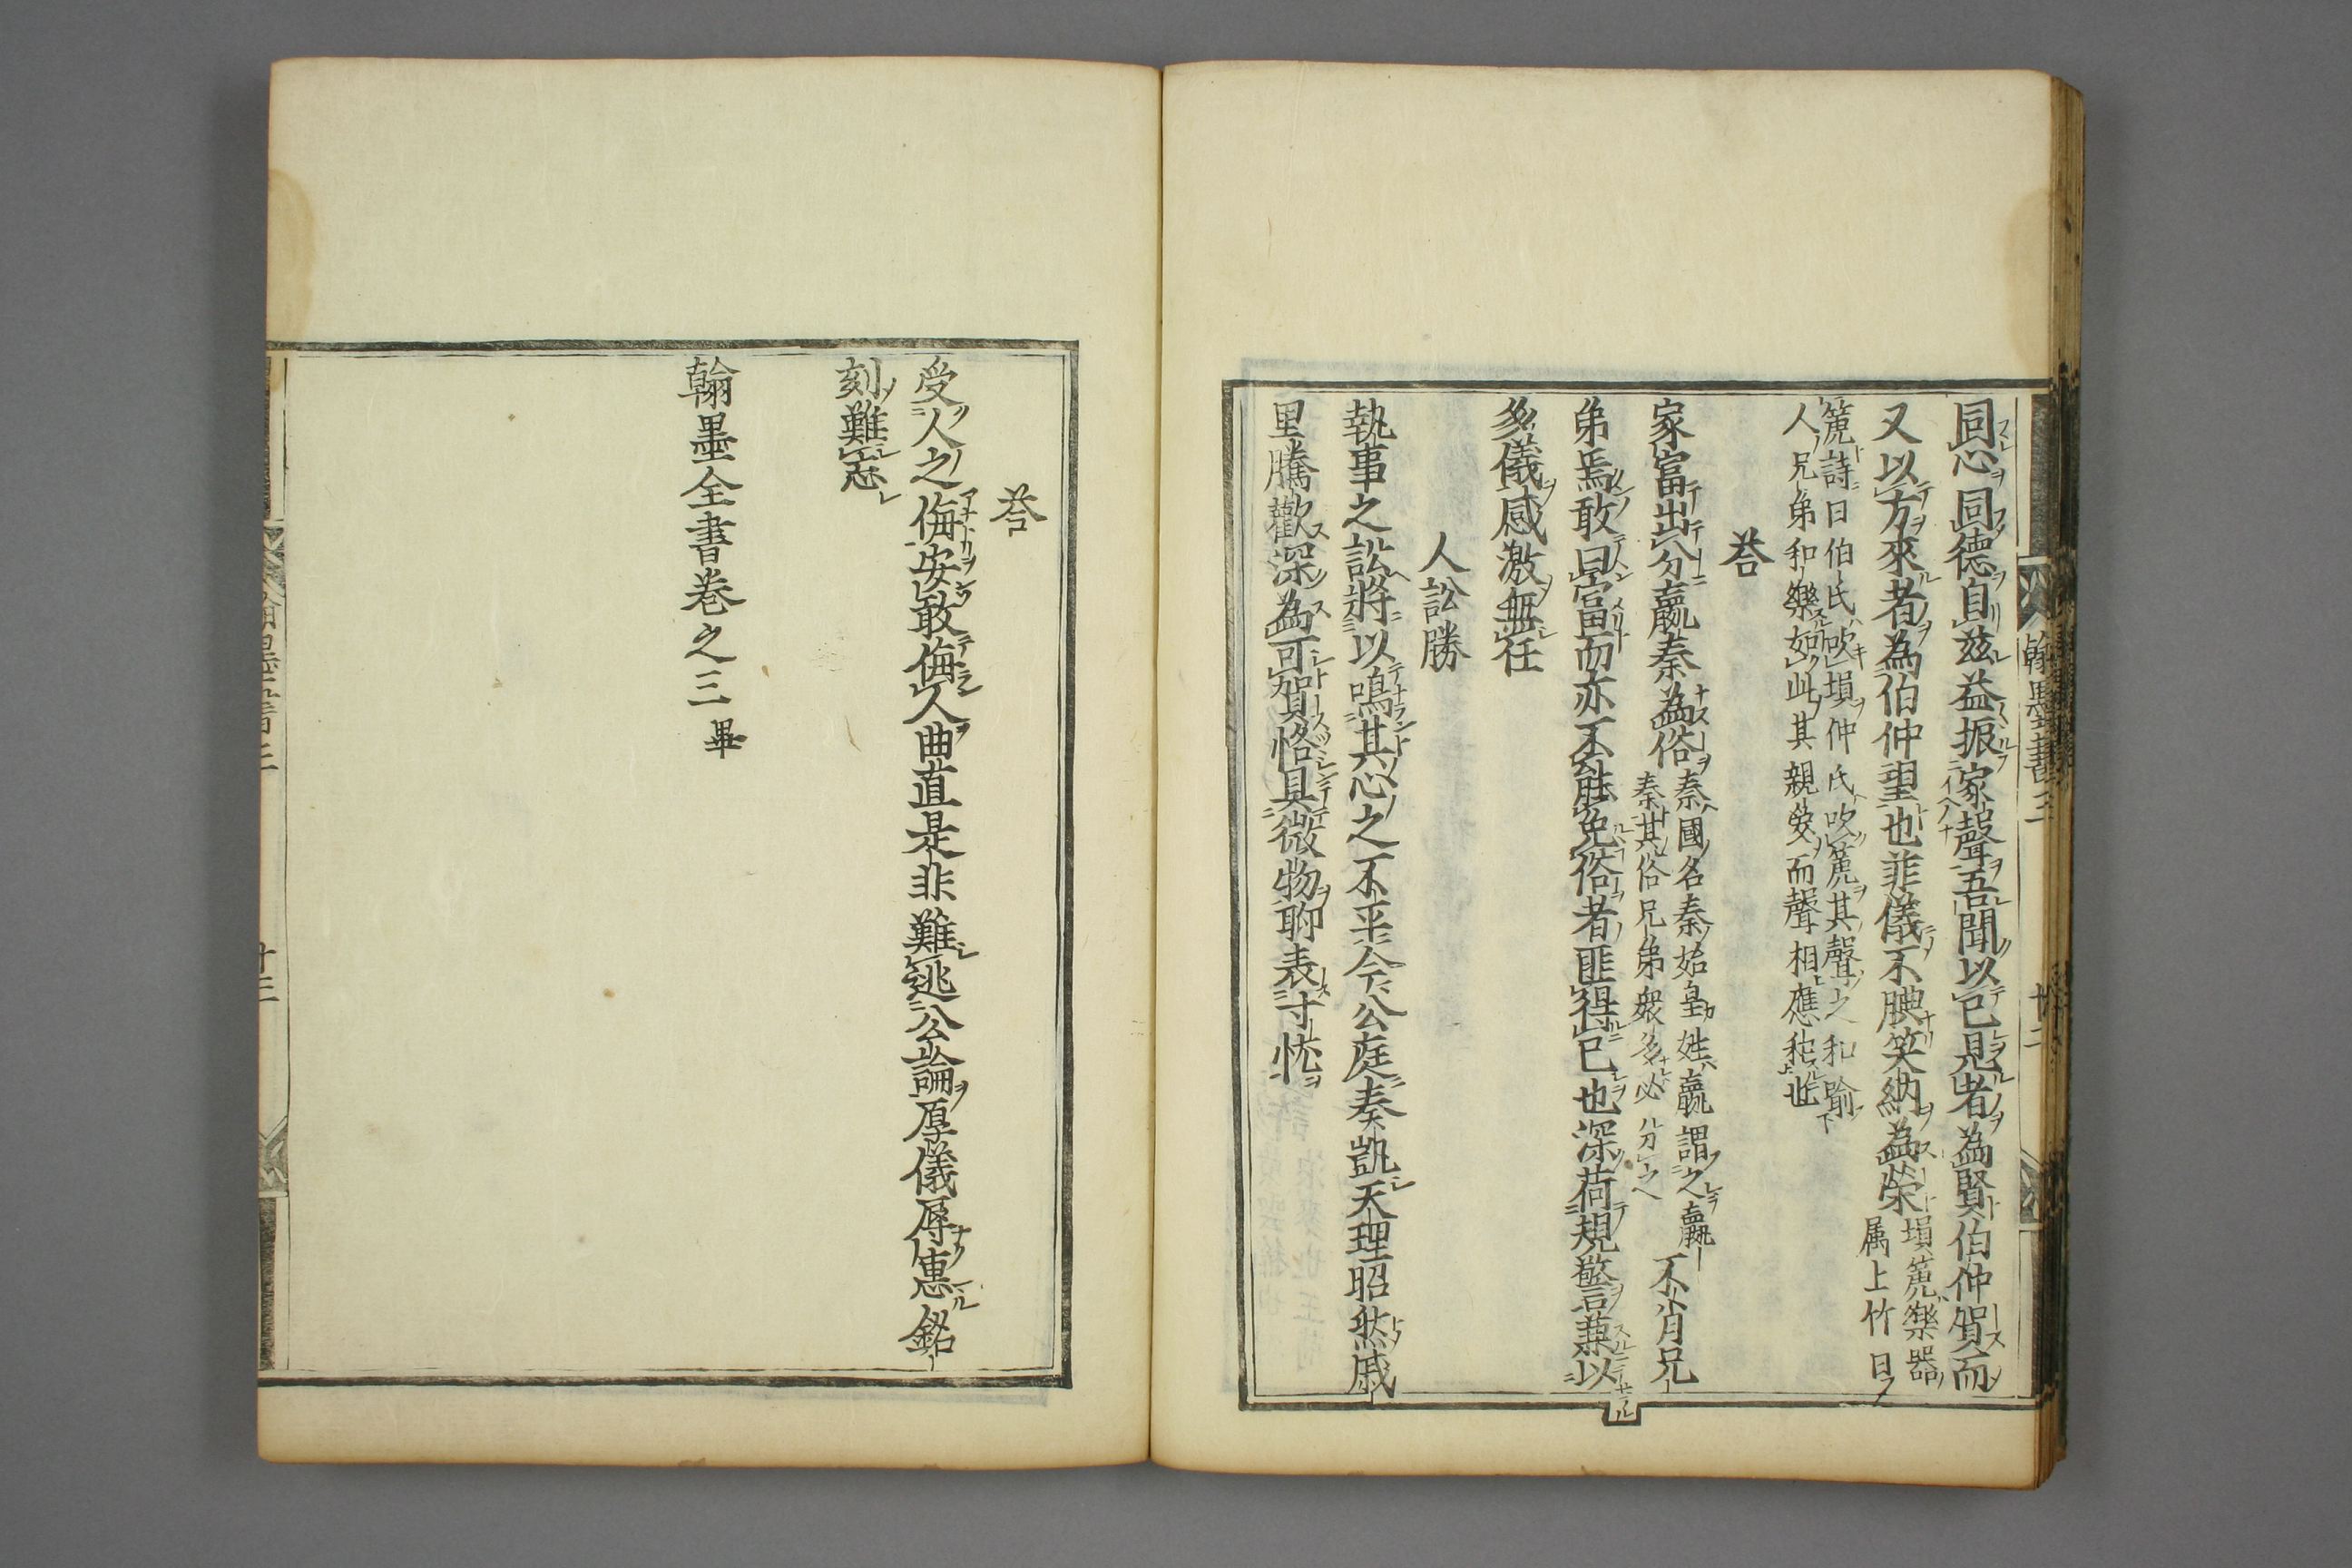 同心同德自兹益振家聲吾聞以已見者為賢伯仲賀而
又以方來者為伯仲望也菲儀不腆笑納為榮
塤箎樂器
属上竹曰
箎詩曰伯氏吹塤仲氏吹箎其聲之和喻
人兄弟和樂如此其親愛而聲相應和也
荅
家富出分贏秦為俗
秦國名秦始皇姓贏謂之贏
秦其俗兄弟衆多必分之
不肖兄
弟焉敢曰富而亦不能免俗者匪得已也深荷規警兼以
多儀感激無任
人訟勝
執事之訟將以鳴其心之不平今公庭奏凱天理昭然戚
里騰歡深為可賀恪具微物聊表寸忱
翰墨書三
廿二
荅
受人之侮安敢侮人曲直是非難逃公論厚儀辱惠銘
刻難忘
翰墨全書卷之三畢